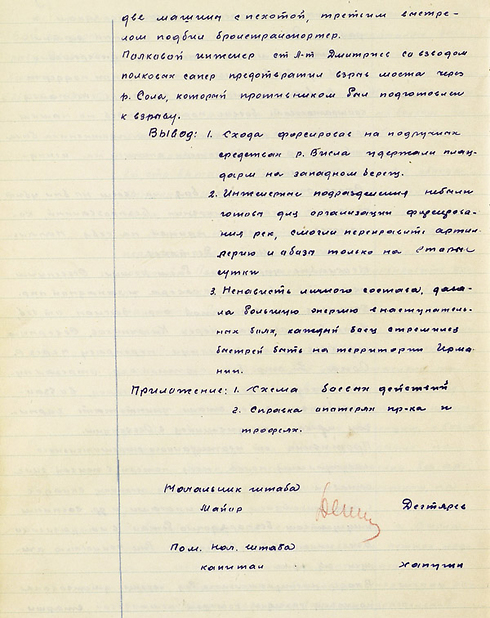 две машины с пехотой, третьим выстре-
лом подбил бронетранспортер.
Полковой инженер ст. Л-т Дмитриев со взводом
полковых сапер предотвратил взрыв моста через
р. Сола, который противником был подготовлен
к взрыву.
Вывод: 1. Схода форсировав на подручных
средствах р. Висла удержали плац-
дарм на западном берегу.
2. Инженерные подразделения небыли
готовы для организации форсирова-
ния рек, смогли переправить артил-
лерию и обозы только на вторые
сутки
3. Ненависть личного состава, дава-
ла большую энергию в наступатель-
ных боях, каждый боец стремился
быстрей быть на территории Герма-
нии.
Приложение: 1. Схема боевых действий
2. Справка опотерях пр-ка и
трофеях.
Начальник штаба
Майор Дегтярев
Пом. Нач. штаба
капитан Хапугин